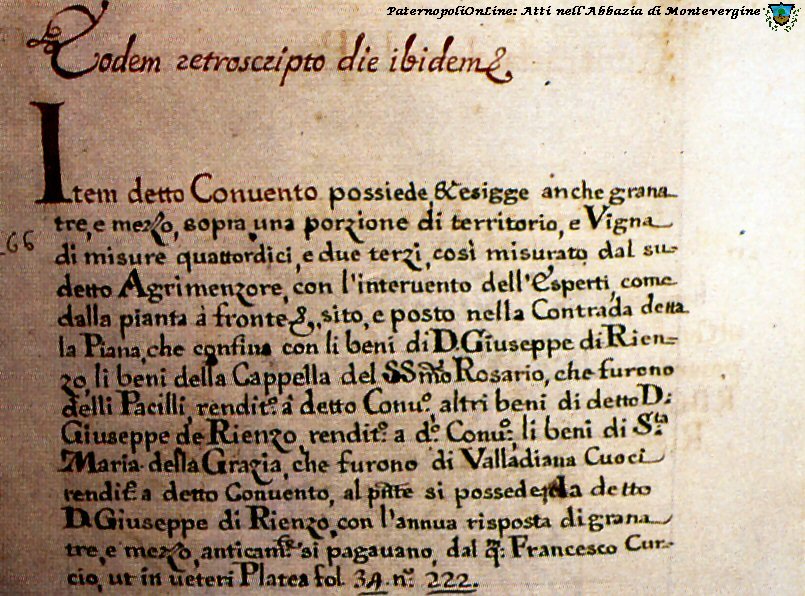 PaternopoliOnLine: Atti nell'Abbazia di Montevergine
Eodem retroscripto die ibidem &,
Item detto Conuento possiede, & esigge anche grana
tre, e mezzo, sopra una porzione di territorio, e Vigna
66
di misure quattordici, e due terzi, così misurato dal su=
detto Agrimenzore, con l'interuento dell'Esperti, come
dalla pianta à fronte &, sito, e posto nella Contrada detta
la Piana, che confina con li beni di D. Giuseppe di Rien=
zo, li beni della Cappella del SSmo Rosario, che furono
delli Pacilli, rendit.i à detto Conu.o, altri beni di detto D.
Giuseppe de Rienzo, rendit.i a d.o Conu.o, li beni di S.ta
Maria della Grazia, che furono di Valladiana Cuoci
rendit.i a detto Conuento, al pñte si possede da detto
D. Giuseppe di Rienzo, con l'annua risposta di grana
tre, e mezzo, anticam.te si pagauano, dal qm: Francesco Cur=
cio, ut in ueteri Platea fol. 34. n.o 222.